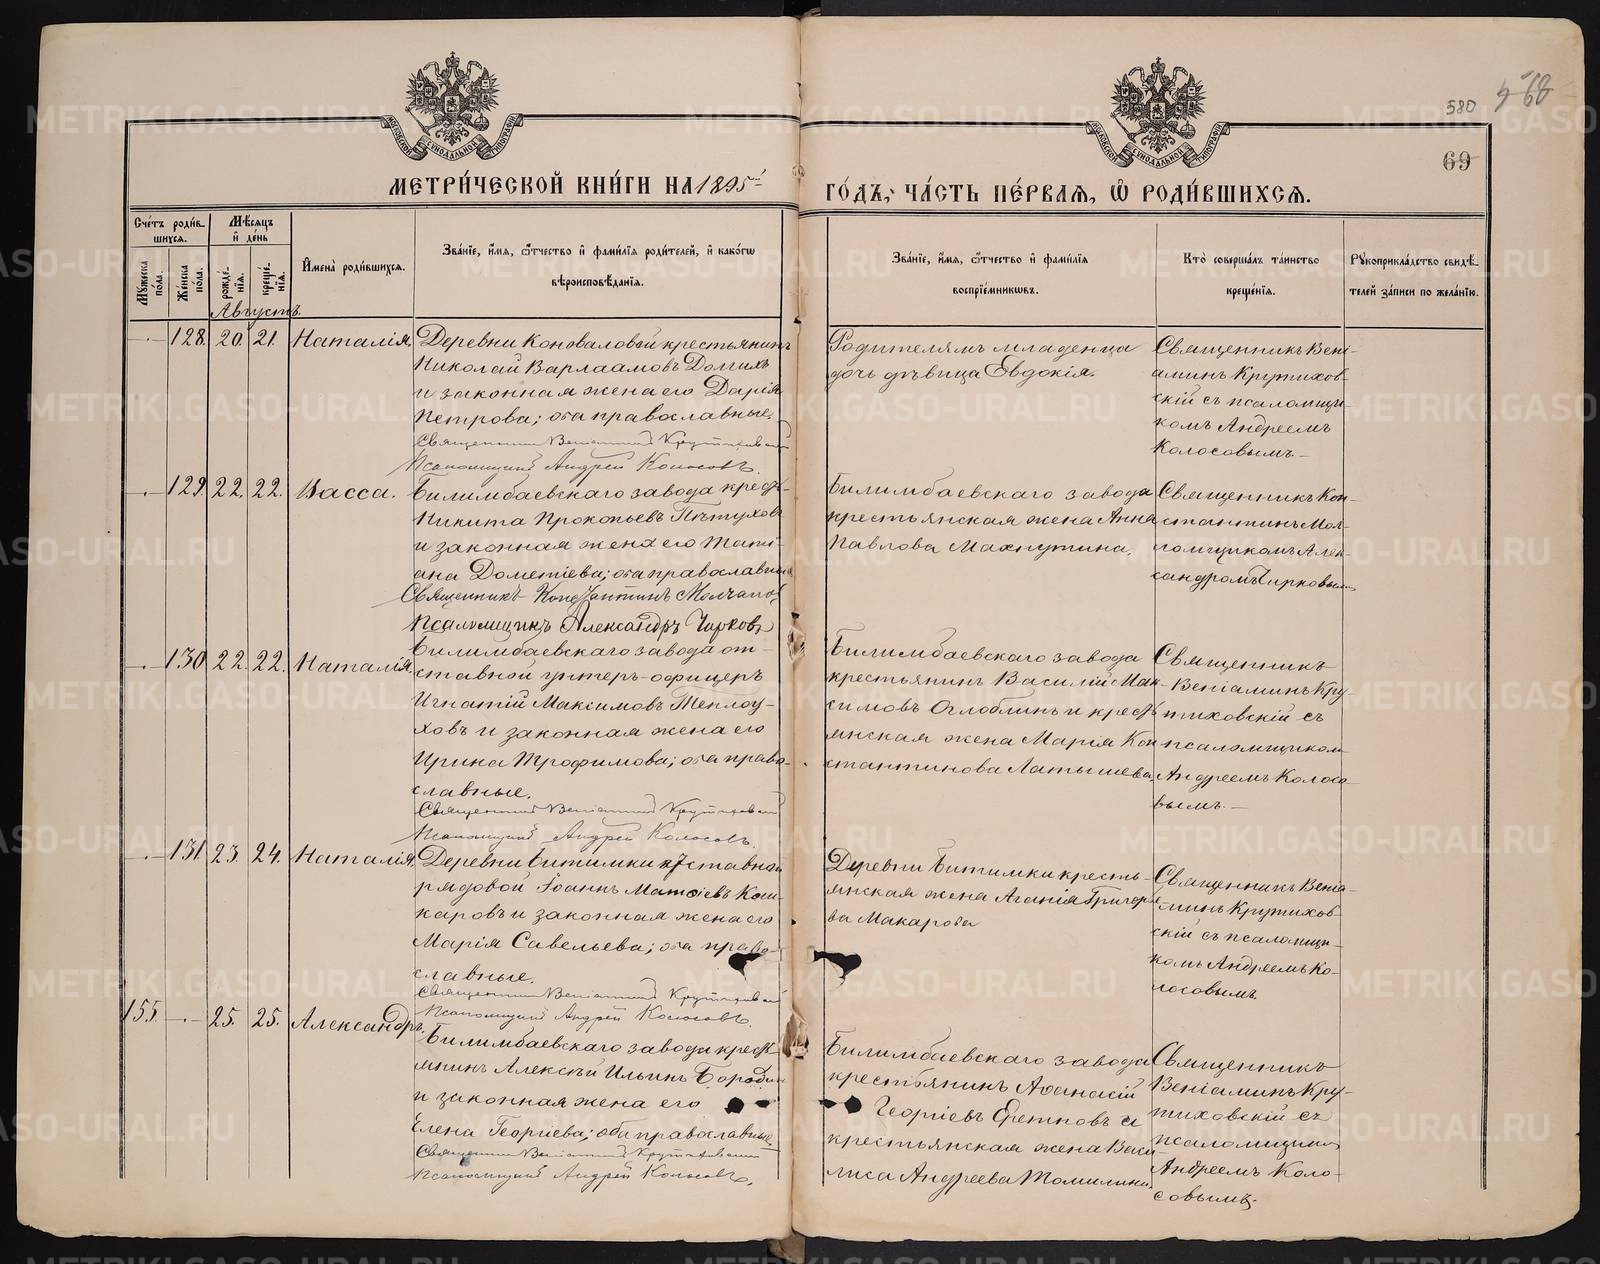 580 568
69
МЕТРИЧЕСКОЙ КНИГИ НА 1895й ГОДЪ, ЧАСТЬ ПЕРВАЯ, Ѡ РОДИВШИХСЯ.
Счетъ родившихся.
Мужеска пола.
Женска пола.
Мѣсяцъ и день
рожденія.
крещенія.
Имена родившихся.
Званіе, имя, отчество и фамилія родителей, и какогѡ
вѣроисповѣданія.
Званіе, имя, отчество и фамилія
воспріемникѡвъ.
Кто совершалъ таинство
крещенія.
Рукоприкладство свидѣ-
телей записи по желанію.
Августъ
128. 20. 21. Наталія.
Деревни Коноваловой крестьянинъ
Николай Варлаамовъ Долгихъ
и законная жена его Дарія
Петрова; оба православные.
Священникъ Веніаминъ Крутиховскій
Псаломщикъ Андрей Колосовъ.
Родителямъ младенца
дочь дѣвица Евдокія.
Священникъ Вені-
аминъ Крутихов-
скій съ псаломщи-
комъ Андреемъ
Колосовымъ
129. 22. 22. Васса.
Билимбаевскаго завода крест-
Никита Прокопьевъ Пѣтухов
и законная жена его Тати-
ана Дометіева; оба православные
Священникъ Константинъ Молчанов
Псаломщикъ Александръ Чирковъ
Билимбаевскаго завода
крестьянская жена Анна
Павлова Махнутина.
Священникъ Кон-
стантинъ Мол-
ломщикомъ Алек-
сандромъ Чирковым
130. 22. 22. Наталія
Билимбаевскаго завода от-
ставной унтеръ-офицеръ
Игнатій Максимовъ Теплоу-
ховъ и законная жена его
Ирина Трофимова; оба право-
славные.
Священникъ Веніаминъ Крутиховскій
Псаломщикъ Андрей Колосовъ.
Билимбаевскаго завода
крестьянинъ Василій Мак-
симовъ Оглоблинъ и крестъ
янская жена Марія Кон
стантинова Латышева.
Священникъ
Веніаминъ Кру-
тиховскій съ
псаломщиком
Андреемъ Колосо-
вымъ.
131. 23. 24. Наталія
Деревни Битимки отставной
рядовой Іоаннъ Матѳіевъ Кош-
каровъ и законная жена его
Марія Савельева; оба право-
славные.
Священникъ Веніаминъ Крутиховскій
Псаломщикъ Андрей Колосовъ.
Деревни Битимки кресть-
янская жена Агапія Григорье
ва Макарова
Священникъ Веніа-
минъ Крутихов-
скій съ псаломщи-
комъ Андреемъ Ко-
лосовымъ.
155. 25. 25. Александръ.
Билимбаевскаго завода кресть
янинъ Алексѣй Ильинъ Бородин
и законная жена его
Елена Георгіева; оба православные
Священникъ Веніаминъ Крутиховскій
Псаломщикъ Андрей Колосовъ.
Билимбаевскаго завода
крестьянинъ Аѳанасій
Георгіевъ Еретновъ и
крестьянская жена Васи
лиса Андреева Томилина.
Священникъ
Веніаминъ Кру-
тиховскій съ
псаломщиком
Андреемъ Коло-
совымъ.